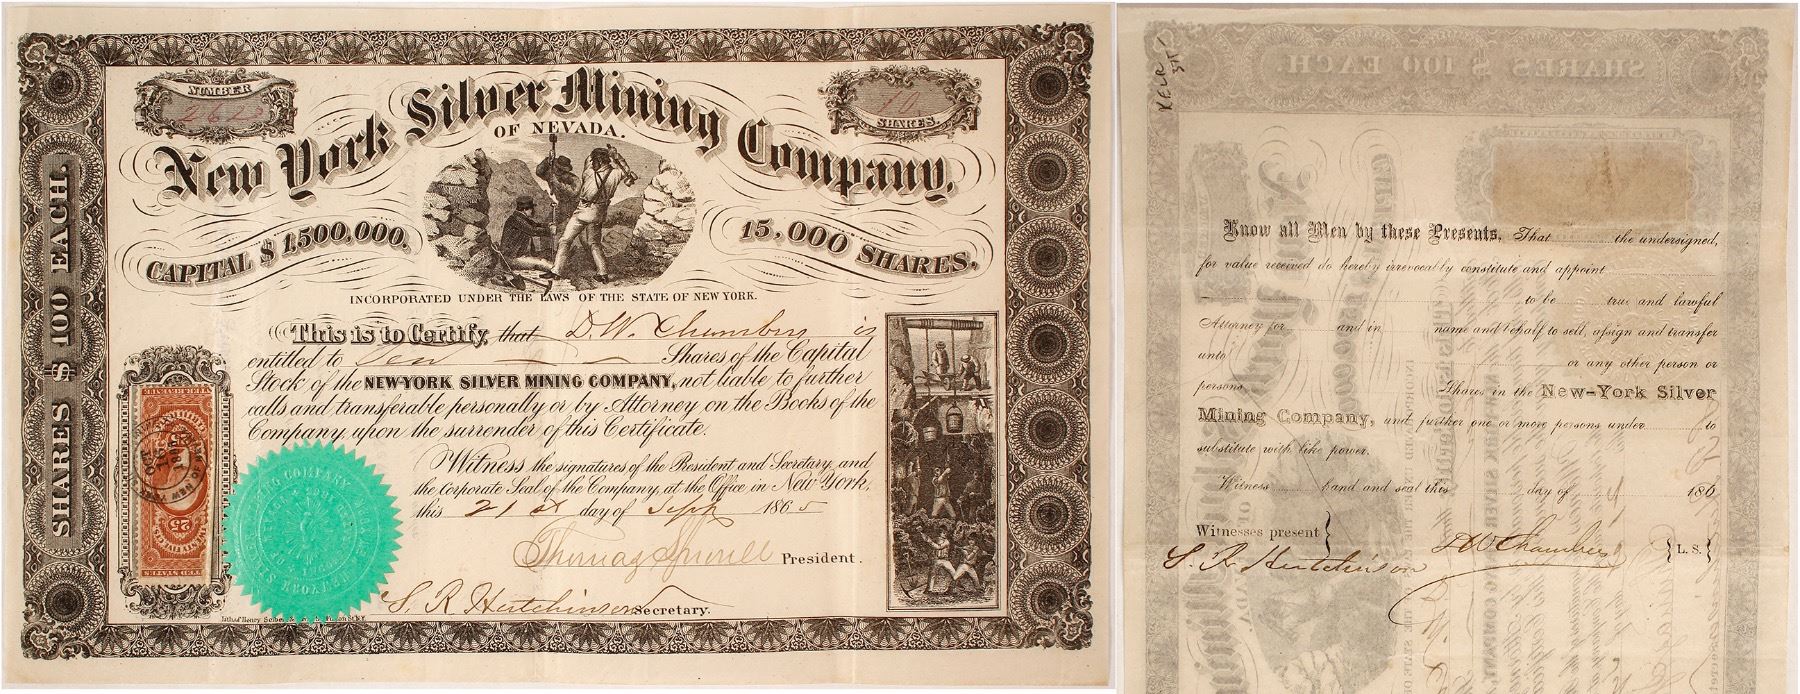 NUMBER
2623
10
SHARES.
New York Silver Mining Company,
OF NEVADA.
CAPITAL $ 1,500,000.
15,000 SHARES.
INCORPORATED UNDER THE LAWS OF THE STATE OF NEW YORK.
This is to Certify, that D. W. Chambers is
entitled to Ten Shares of the Capital
Stock of the NEW-YORK SILVER MINING COMPANY, not liable to further
calls and transferable personally or by Attorney on the Books of the
Company upon the surrender of this Certificate.
Witness the signatures of the President and Secretary, and
the Corporate Seal of the Company, at the Office in New York,
this 21st day of Sept 1865
Thomas President.
S. R. Hutchinson Secretary.
SHARES $ 100 EACH.
25
Know all Men by these Presents, That the undersigned,
for value received do hereby irrevocably constitute and appoint
to be true and lawful
Attorney for and in name and behalf to sell, assign and transfer
unto or any other person or
persons Shares in the New-York Silver
Mining Company, and further one or more persons under to
substitute with like power.
Witness hand and seal this day of 186
Witnesses present
S. R. Hutchinson D W Chambers {L. S.}
SHARES $ 100 EACH.